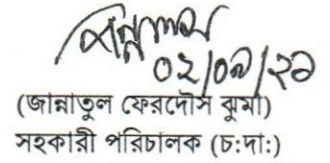 ০২/০৯/২১
(জান্নাতুল ফেরদৌস ঝুমা)
সহকারী পরিচালক (চ:দা:)